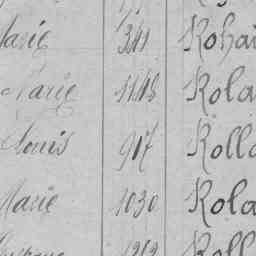 Marie 341 Rohai
Marie 1148 Rola
Louis 917 Rolla
Marie 1030 Rola
Roll